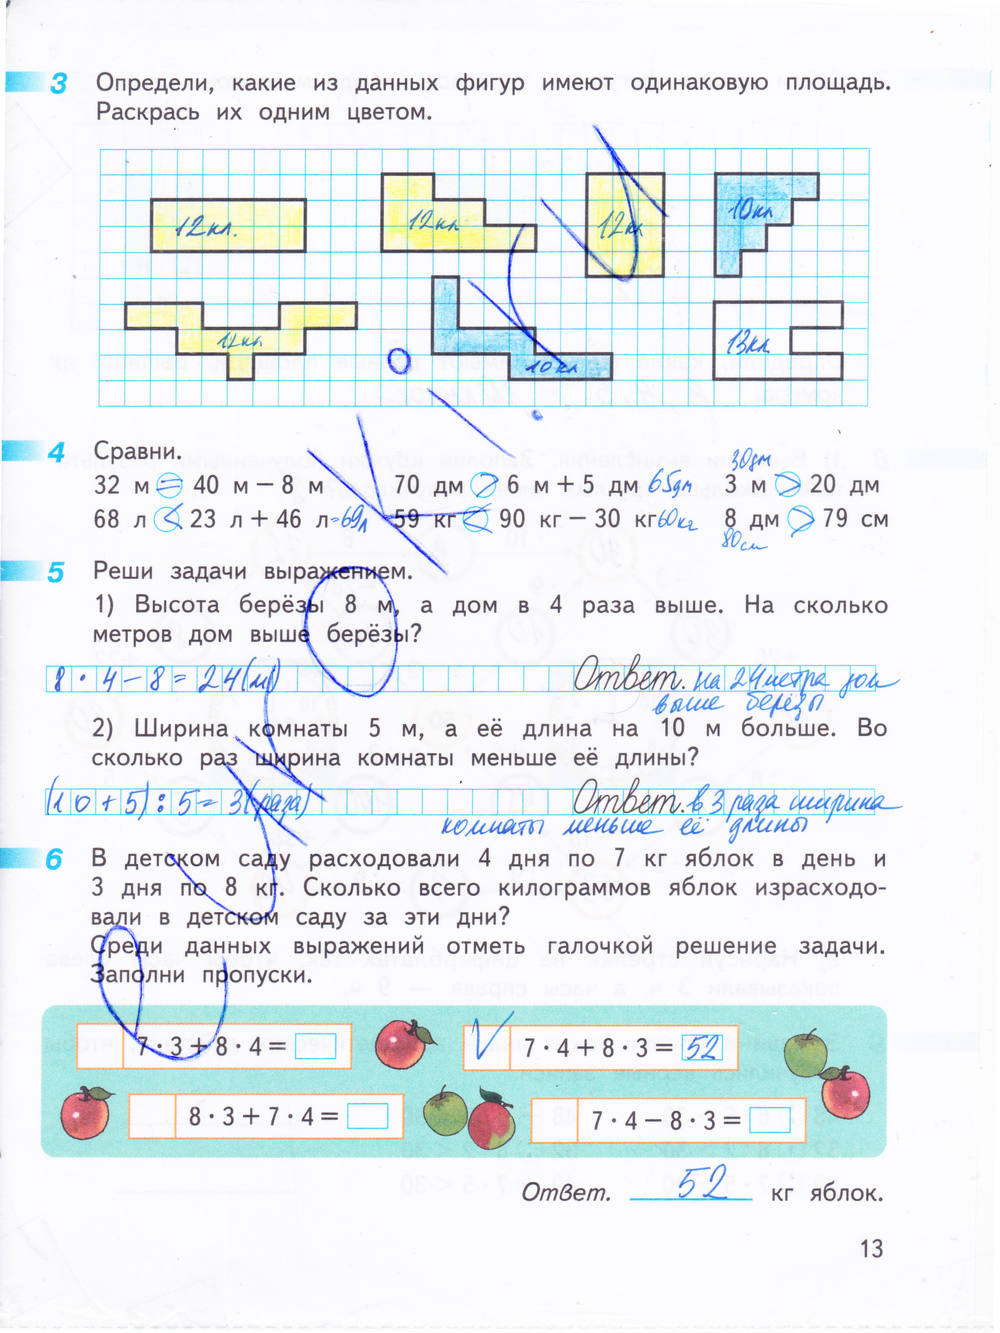 3 Определи, какие из данных фигур имеют одинаковую площадь.
Раскрась их одним цветом.
12кл. 12кл. 12кл 10кл
12кл. 10кл 13кл
4 Сравни.
30дм
32 м = 40 м – 8 м 70 дм > 6 м + 5 дм 65дм 3 м > 20 дм
68 л < 23 л + 46 л =69л 59 кг < 90 кг – 30 кг 60кг 8 дм > 79 см
80см
5 Реши задачи выражением.
1) Высота берёзы 8 м, а дом в 4 раза выше. На сколько
метров дом выше берёзы?
8 · 4 – 8 = 24(м) Ответ. на 24 метра дом
выше берёзы
2) Ширина комнаты 5 м, а её длина на 10 м больше. Во
сколько раз ширина комнаты меньше её длины?
(10 + 5) : 5 = 3(раза) Ответ. в 3 раза ширина
комнаты меньше её длины
6 В детском саду расходовали 4 дня по 7 кг яблок в день и
3 дня по 8 кг. Сколько всего килограммов яблок израсходо-
вали в детском саду за эти дни?
Среди данных выражений отметь галочкой решение задачи.
Заполни пропуски.
7 · 3 + 8 · 4 = V 7 · 4 + 8 · 3 = 52
8 · 3 + 7 · 4 = 7 · 4 – 8 · 3 =
Ответ. 52 кг яблок.
13